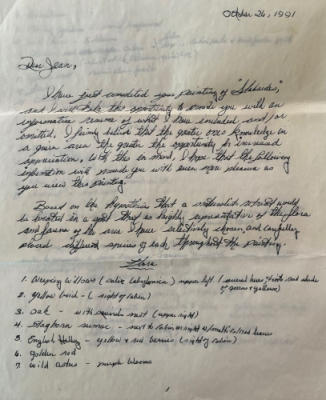 October 26, 1991
Dear Jean,
I have just completed your painting of
and I will take this opportunity to provide you with an
informative resume of what I have included and/or
omitted. I firmly believe that the greater ones knowledge in
a given area the greater the opportunity for increased
appreciation. With this in mind, I hope that the following
information will provide you with even more pleasure as
you view this painting.
Based on the hypothesis that a naturalist would
be located in a spot that is highly representative of the flora
and fauna of the area I have selectively chosen and carefully
placed different species of each throughout the painting.
Flora
1. Weeping Willows (salix babylonica) upper left
2. Yellow birch - (right of cabin)
3. oak - with squirrels nest (upper right)
4. Staghorn sumac - next to cabin on right w/
5. English Holly - yellow & red berries (right of cabin)
6. golden rod
7. Wild aster - purple blooms